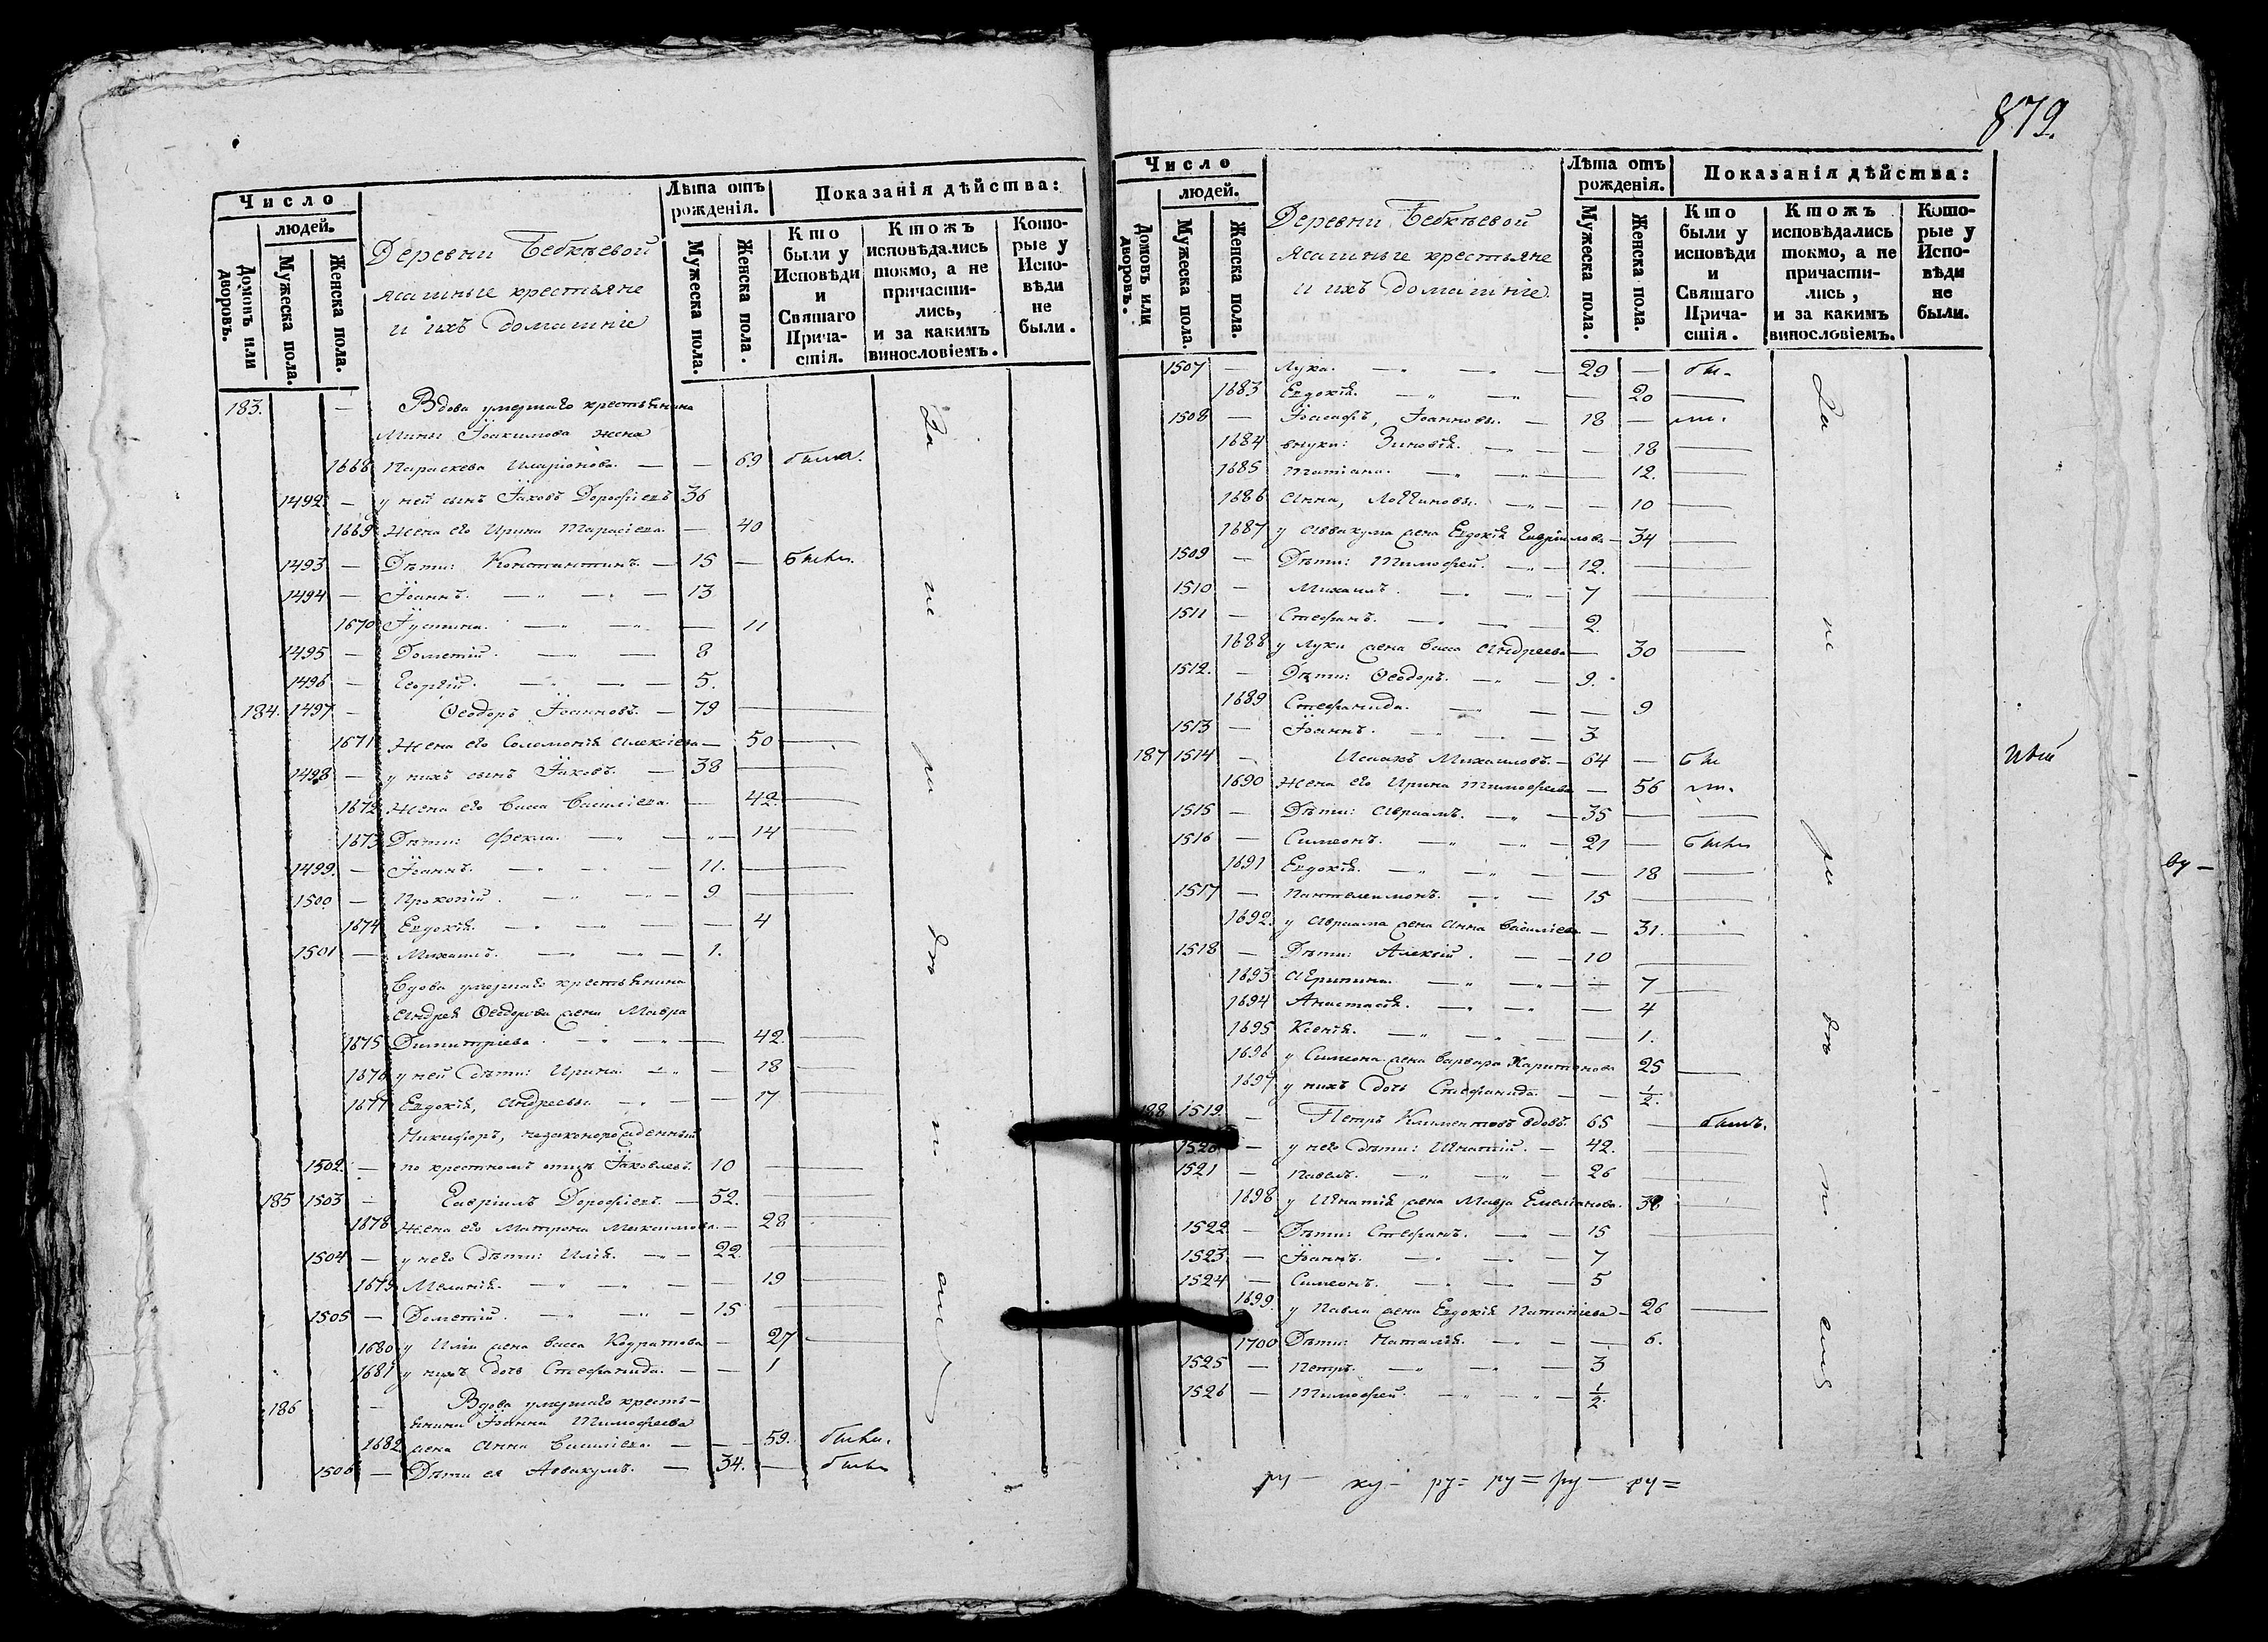 879.
Число
людей.
Домовъ или дворовъ.
Мужеска пола.
Женска пола.
Деревни Бебкѣевой
ясашные крестьяне
и ихъ домашніе
Лѣта отъ рожденія.
Мужеска пола.
Женска пола.
Показанія дѣйства:
Кто были у Исповѣди и Свяшаго Причастія.
Ктожъ исповѣдались токмо, а не причастились, и за какимъ винословіемъ.
Которые у Исповѣди не были.
183. — Вдова умершаго крестьянина
Мины Іоакимова жена
1668 Параскева Иларіонова. — — 69 была.
1492. — у ней сынъ Іаковъ Дорофіевъ 36
1669 Жена его Ирина Тарасіева. — 40
1493 — Дѣти: Константинъ. — 15 —
1494 — Іоаннъ. — 13
1670 Іустина. — — 11
1495 — Дометій. — 8
1496 — Георгій. — 5.
184. 1497 — Ѳеодоръ Іоанновъ. — 79
1671 Жена его Соломонія Алексіева — 50
1498 — у нихъ сынъ Іаковъ. — 38
1672 Жена его Васса Василіева. — 42.
1673 Дѣти: Ѳекла. — 14
1499. — Іоаннъ. — 11.
1500 — Прокопій. — 9
1674 Евдокія. — — 4
1501 — Михаилъ. — 1.
Вдова умершаго крестьянина
Андрея Ѳеодорова жена Мавра
1675 Димитріева. — 42.
1676 у ней дѣти: Ирина. — 18
1677 Евдокія, Андреевы. — 17
Никифоръ, незаконорожденный
1502. — по крестномъ отцѣ Іаковлевъ. 10
185 1503 — Гавріилъ Дорофіевъ. — 52.
1678 Жена его Матрона Максимова. — 28
1504 — у него дѣти: Илія. — 22.
1679 Меланія. — 19
1505 — Дометій. — 15
1680 у Иліи жена Васса Кодратова — 27
1681 у нихъ дочь Стефанида. — 1
186 — Вдова умершаго кресть-
янина Іоанна Тимофеева
1682 жена Анна Василіева. — 59.
1506 — Дѣти ея Аввакумъ. — 34.
Число
людей.
Домовъ или дворовъ.
Мужеска пола.
Женска пола.
Деревни Бебкѣевой
ясашные крестьяне
и ихъ домашніе.
Лѣта отъ рожденія.
Мужеска пола.
Женска пола.
Показанія дѣйства:
Кто были у исповѣди и Свяшаго Причастія.
Ктожъ исповѣдались токмо, а не причастились, и за какимъ винословіемъ.
Которые у Исповѣди не были.
1507 — Лука. — 29 —
1683 Евдокія. — 20
1508 — Іоасафъ, Іоанновы. — 18 —
1684 внуки: Зиновія. — 18
1685 Татіана. — 12.
1686 Анна, Логгиновы. — 10
1687 у Аввакума жена Евдокія Гавріилова — 34
1509 — Дѣти: Тимофей. — 12.
1510 — Михаилъ. — 7
1511 — Стефанъ. — 2.
1688 у Луки жена Васса Андреева — 30
1512. — Дѣти: Ѳеодоръ. — 9.
1689 Стефанида. — 9
1513 — Іоаннъ. — 3
187 1514 — Исаакъ Михаиловъ. — 64 —
1690 Жена его Ирина Тимофеева — 56
1515 — Дѣти: Авраамъ. — 35
1516 — Симеонъ. — 21 —
1691 Евдокія. — 18
1517 — Пантелеимонъ. — 15
1692. у Авраама жена Анна Василіева — 31.
1518 — Дѣти: Алексій. — 10
1693 Агрипина. — 7
1694 Анастасія. — 4
1695 Ксенія. — 1.
1696 у Симеона жена Варвара Харитонова 25
1697 у нихъ дочь Стефанида. — 1/2.
188 1519. — Петръ Климентовъ вдовъ. 65 — былъ.
1520 — у него дѣти: Игнатій. — 42.
1521 — Павелъ. — 26
1698 у Игнатія жена Мавра Емеліанова. 38
1522 — Дѣти: Стефанъ. — 15
1523. — Іоаннъ. — 7
1524 — Симеонъ. — 5
1699. у Павла жена Евдокія Ипатіева — 26
1700 Дѣти: Наталія. — 6.
1525 — Петръ. — 3
1526 — Тимофей. — 1/2.
ру — ху — ру = ру = ру — ру =